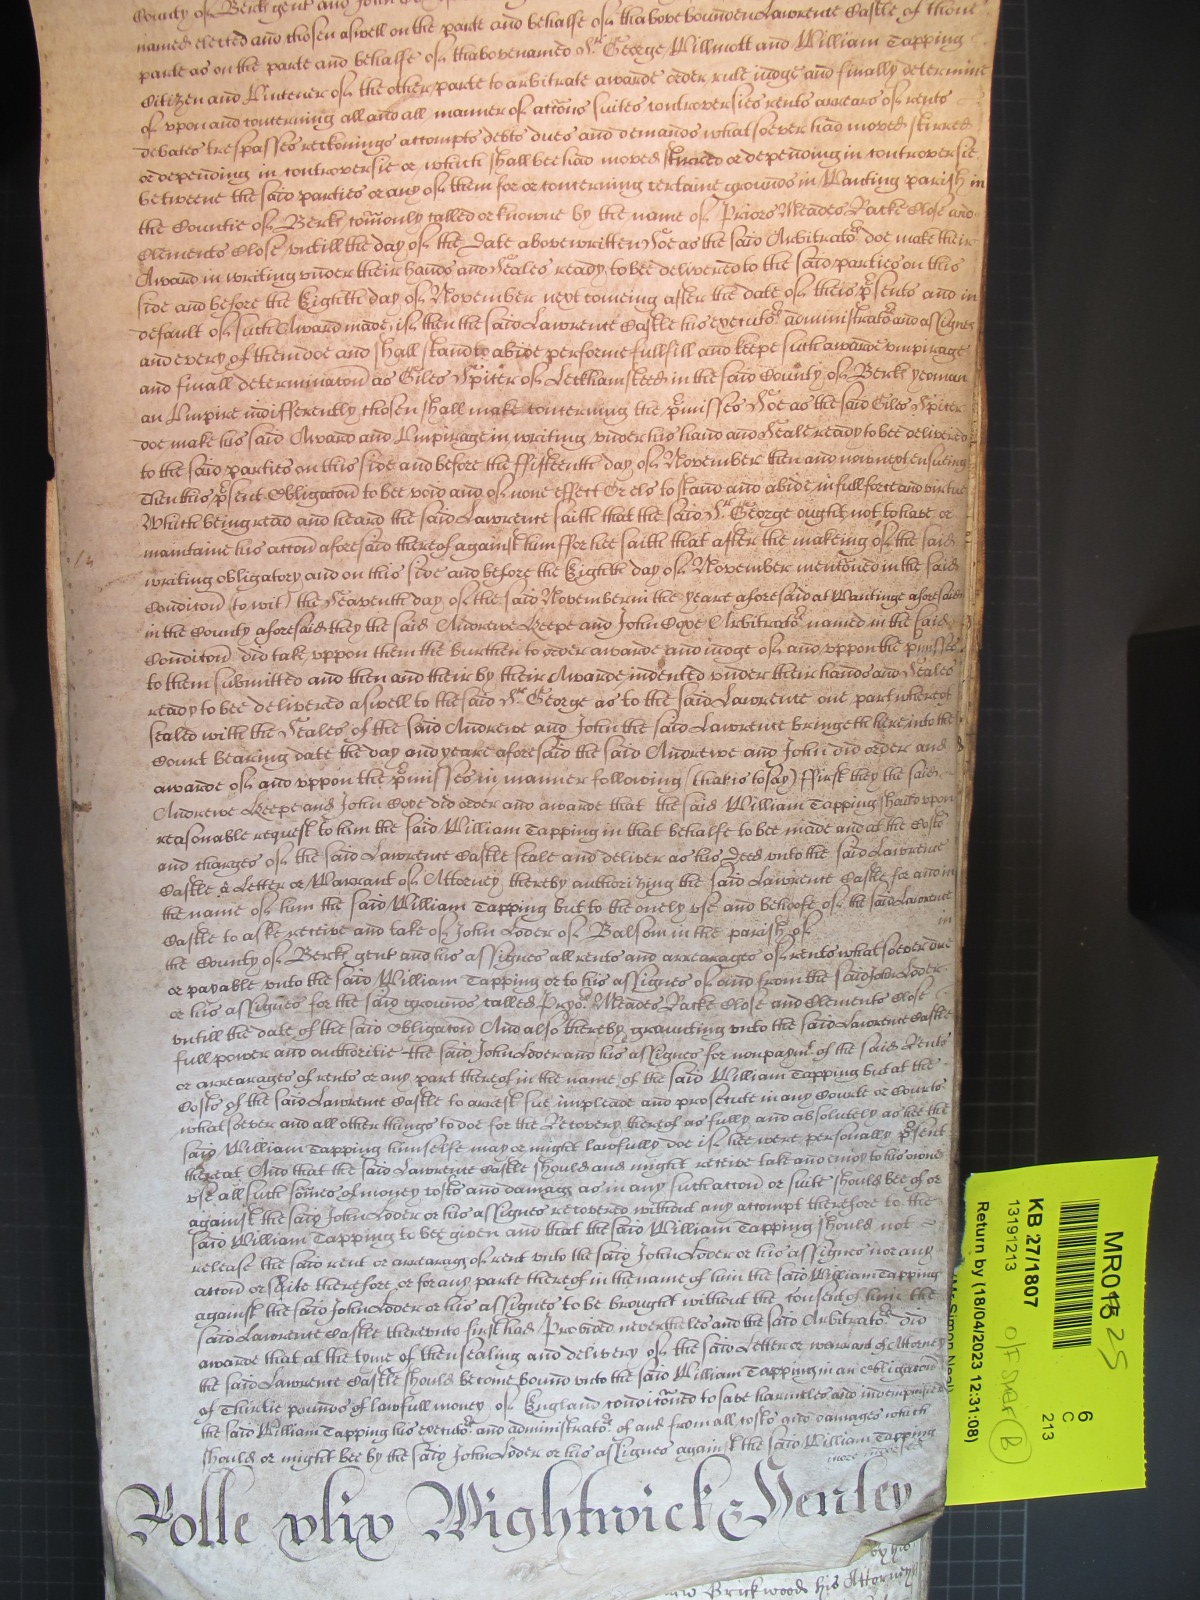 County of Berks gent and John
named elected and chosen aswell on the parte and behalfe of thabove bounden Lawrence Castle of thone
parte as on the parte and behalfe of thabovenamed Sr George Willmott and William Tapping
Citizen and Vintener of the other parte to arbitrate awarde order rule iudge and finally determine
of vpon and concerning all and all manner of accons suites controversies rents arrears of rents
debates trespasses reckonings attompts debts dues and demands whatsoever had moved stirred
or depending in controversie or which shall bee had moved stirred or depending in controversie
betweene the said parties or any of them for or concerning certaine grounds in Wanting parish in
the Countie of Berks comonly called or knowne by the name of Priors Meades Packe Close and
Clements Close vntill the day of the date abovewritten Soe as the said Arbitrators doe make their
Award in writing vnder their hands and Seales ready to bee delivered to the said parties on this
side and before the Eighth day of November next comeing after the date of theis psents and in
default of such Award made if then the said Lawrence Castle his executors administrators and assignes
and every of them doe and shall stand to abide performe fullfill and keepe such awarde vmpirage
and finall determinacon as Giles Spicer of Letchamsteed in the said County of Berks yeoman
an Vmpire indifferently chosen shall make concerning the pmisses Soe as the said Giles Spicer
doe make his said Award and Vmpirage in writing vnder his hand and Seale ready to bee delivered
to the said parties on this side and before the ffifteenth day of November then and now next ensueing
Then this psent Obligacon to bee void and of none effect Or els to stand and abide in full force and virtue
Which being read and heard the said Lawrence saith that the said Sr George ought not to have or
maintaine his accon aforesaid thereof against him ffor hee saith that after the making of the said
writing obligatory and on this side and before the Eighth day of November menconed in the said
Condicon (to wit) the Seaventh day of the said November in the yeare aforesaid at Wantinge aforesaid
in the County aforesaid they the said Andrewe Keepe and John Cove Arbitrators named in the said
Condicon did take vppon them the burthen to order awarde and iudge of and vppon the pmisses
to them submitted and then and their by their Awarde indented vnder their hands and Seales
ready to bee delivered aswell to the said Sr George as to the said Lawrence one part whereof
sealed with the Seales of the said Andrewe and John the said Lawrence bringeth here into the
Court bearing date the day and yeare aforesaid the said Andrewe and John did order and
awarde of and vppon the pmisses in manner following (that is to say) ffirst they the said
Andrewe Keepe and John Cove did order and awarde that the said William Tapping should vpon
reasonable request to him the said William Tapping in that behalfe to bee made and at the Costs
and charges of the said Lawrence Castle seale and deliver as his Deed vnto the said Lawrence
Castle a Letter or Warrant of Attorney thereby authorizing the said Lawrence Castle for and in
the name of him the said William Tapping but to the onely vse and behoofe of the said Lawrence
Castle to aske receive and take of John Loder of Balsom in the parish of in
the County of Berks gent and his assignes all rents and arrearages of rents whatsoever due
or payable vnto the said William Tapping or to his assignes of and from the said John Loder
or his assignes for the said grounds called Pryors Meades Packe Close and Clements Close
vntill the date of the said Obligacon And also thereby graunting vnto the said Lawrence Castle
full power and authoritie the said John Loder and his assignes for nonpaymt of the said Rents
or arrearages of rents or any part thereof in the name of the said William Tapping but at the
Costs of the said Lawrence Castle to arrest sue impleade and prosecute in any Courte or Courts
whatsoever and all other things to doe for the Recovery thereof as fully and absolutely as hee the
said William Tapping himselfe may or might lawfully doe if hee were personally psent
thereat And that the said Lawrence Castle should and might receive take and enioy to his owne
vse all such somes of money costs and damags as in any such accon or suite should bee of or
against the said John Loder or his assignes recovered without any attompt therefore to the
said William Tapping to bee given and that the said William Tapping should not
release the said rent or arrearags of rent vnto the said John Loder or his assignes nor any
accon or suite therefore or for any parte thereof in the name of him the said William Tapping
against the said John Loder or his assignes to be brought without the consent of him the
said Lawrence Castle therevnto first had Provided neverthelес and the said Arbitrators did
awarde that at the tyme of then sealing and delivery of the said Letter or warrant of Attorney
the said Lawrence Castle should become bound vnto the said William Tapping in an obligacon
of Thirtie pounds of lawfull money of England condiconed to save harmeles and indempnified
the said William Tapping his executors and administrators of and from all costs and damages which
should or might bee by the said John Loder or his assignes against the said William Tapping
Rolle xliv Wightwick & Henley
by his
Brickwood his Attorney
MR013 25
KB 27/1807
13191213
Return by (18/04/2023 12:31:08)
6
C
213
B